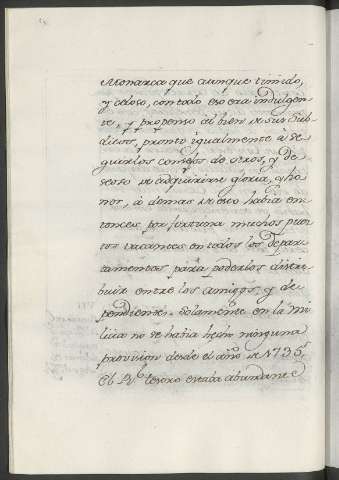 Monarca que aunque timido,
y celoso, con todo eso era indulgen
te, y propenso al bien de sus Sub
ditos, pronto igualmente à se
guir los consejos de otros, y de
seoso de adquirirse gloria, y ho
nor, à demas de esto habia en
tonces por fortuna muchos pues
tos vacantes en todos los Depar
tamentos para poderlos distri
buir entre los amigos, y de
pendientes. Solamente en la Mi
licia no se habia hecho ninguna
provision desde el año de 1735.
El Rl. tesoro estaba abundante